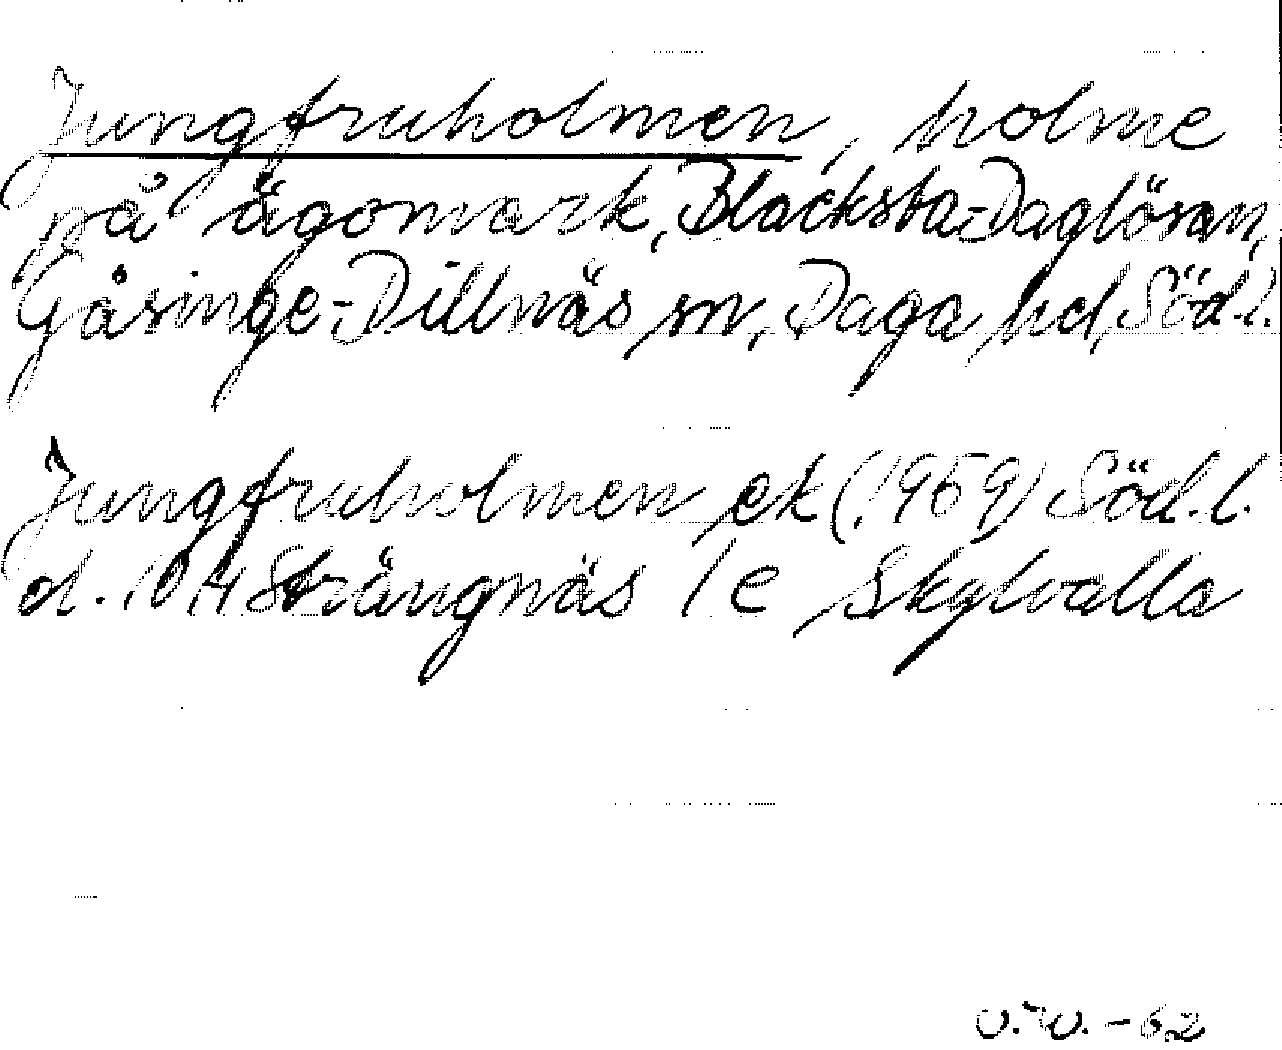 Jungfruholmen, holme
på ägomark, Blacksta-Daglösan,
Gåsinge-Dillnäs sn, Daga hd, Söd.l.
Jungfruholmen ek (1959) Söd.l.
d. 10 H Strängnäs 1 e Skylvalla
V.W. -62